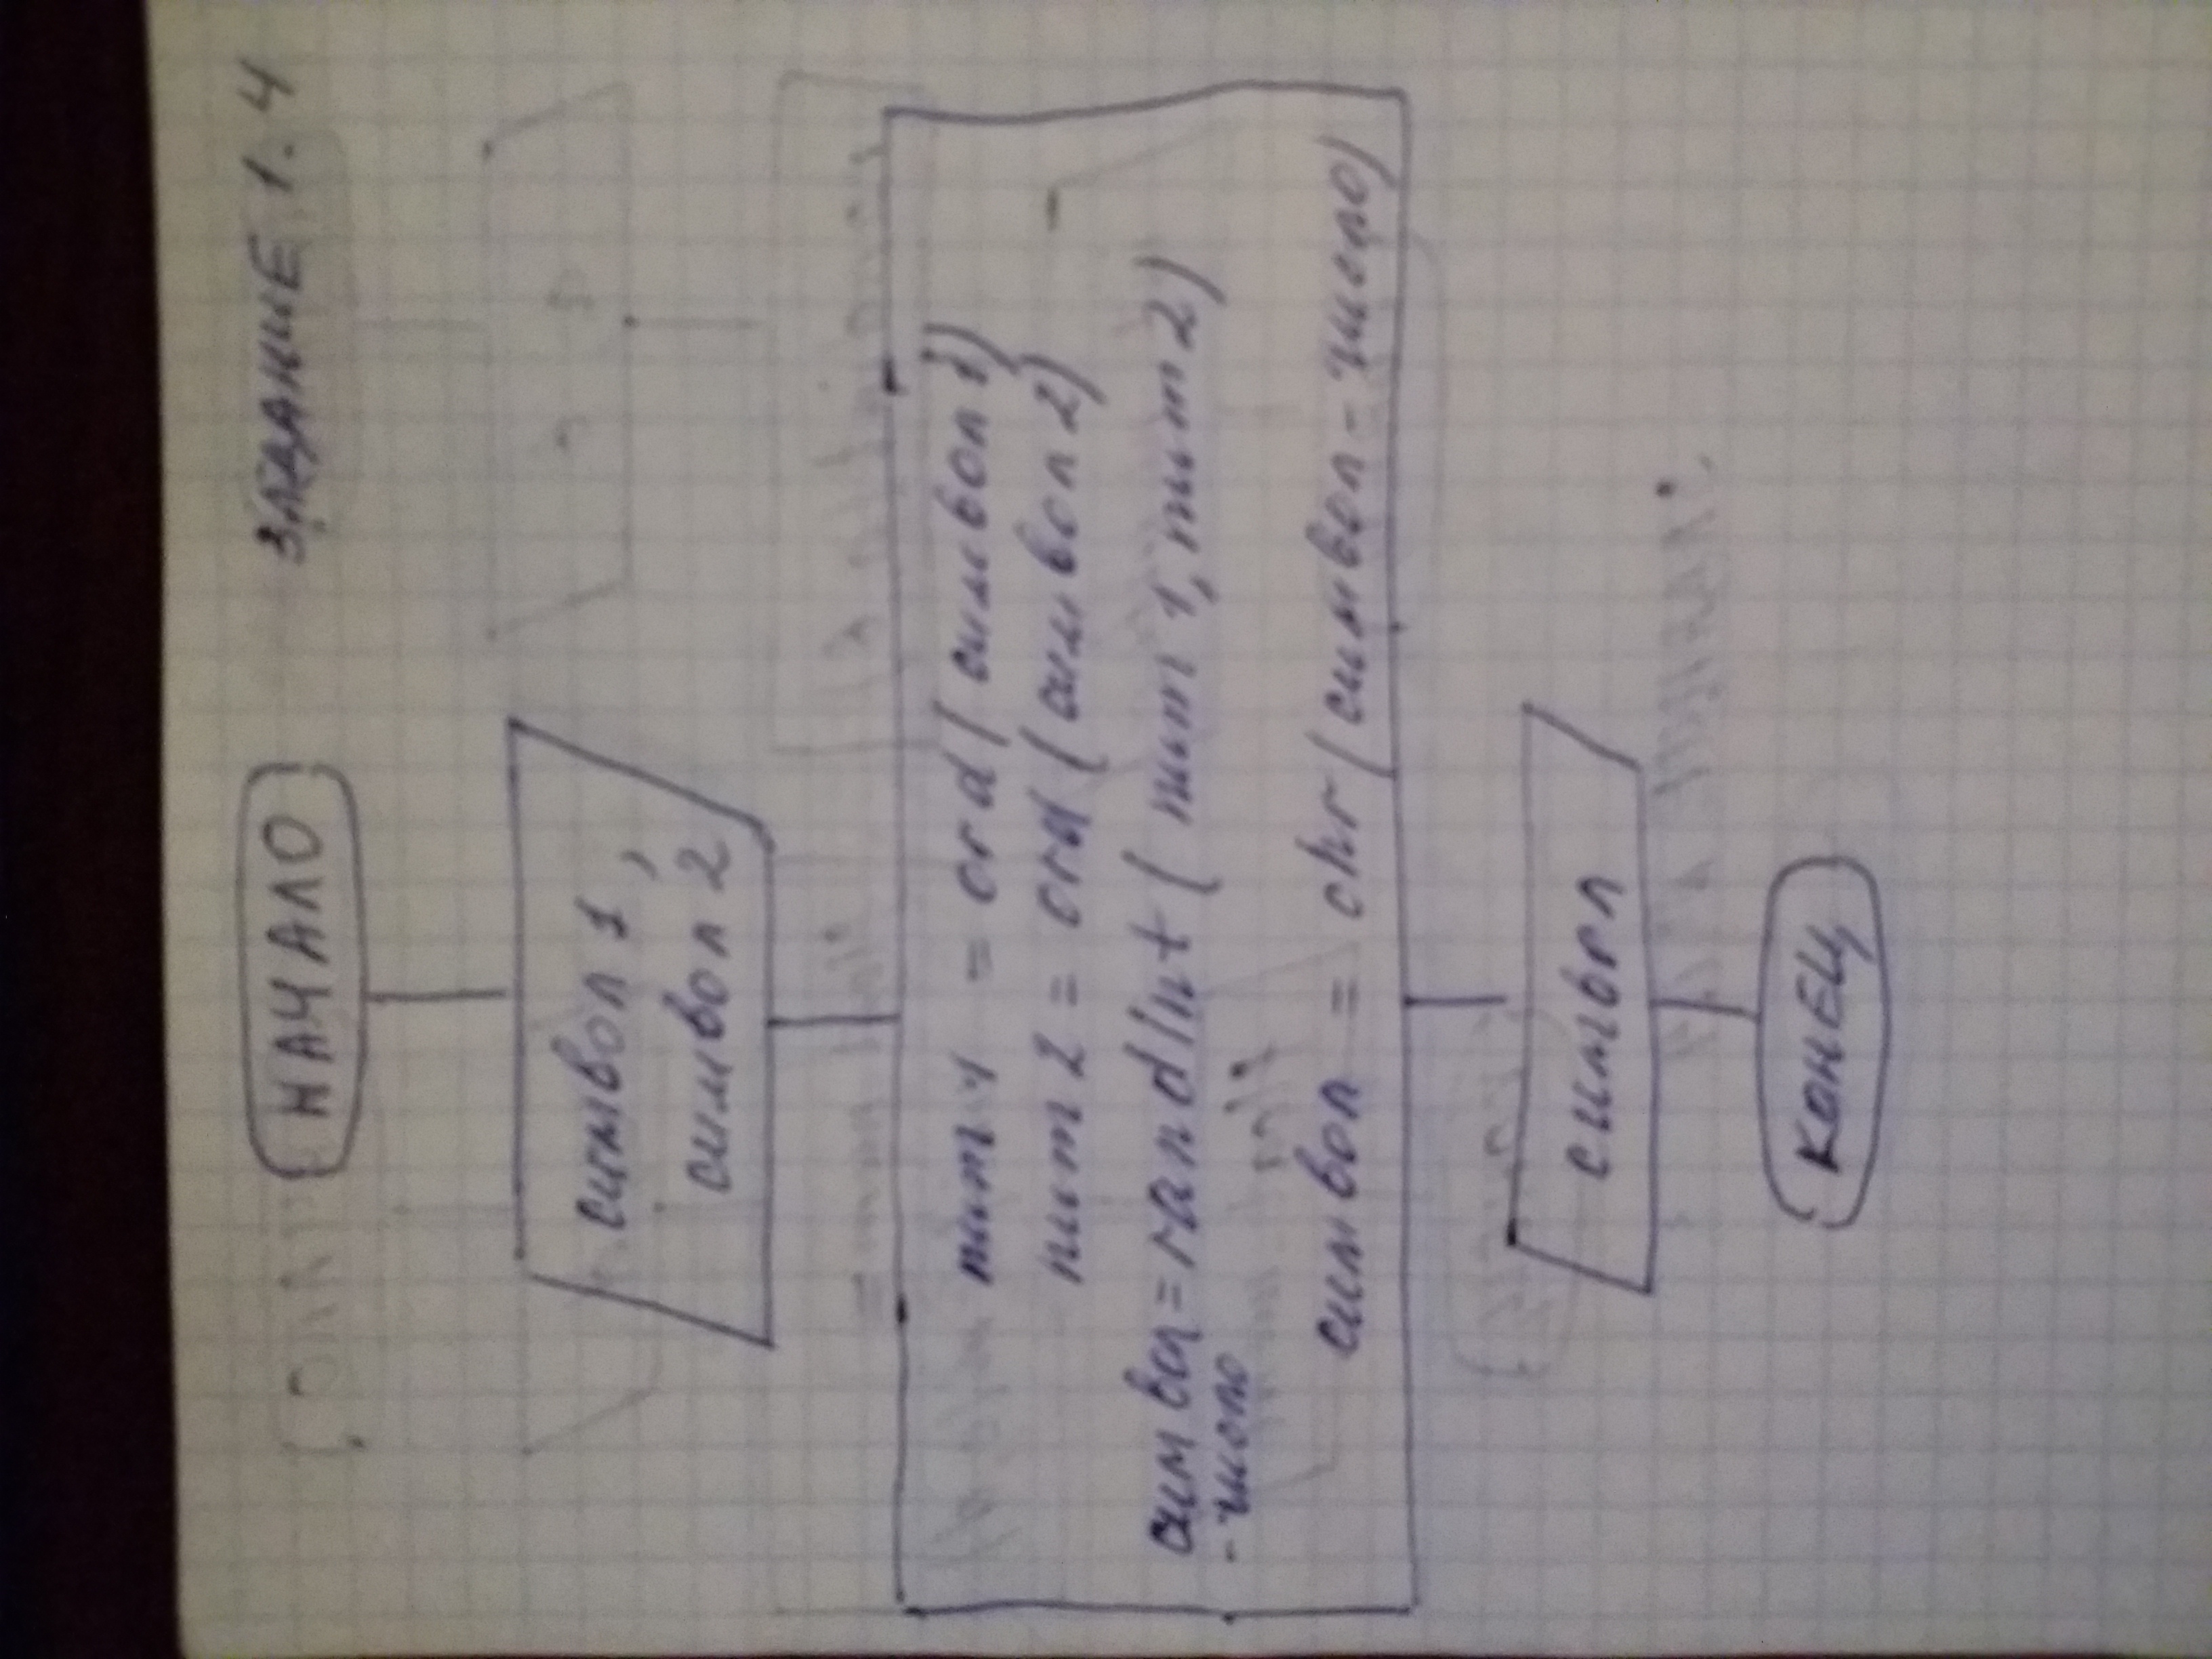 НАЧАЛО
ЗАДАНИЕ 1.4
символ 1,
символ 2
num 1 = ord (символ 1)
num 2 = ord (символ 2)
символ = randint ( num 1, num 2)
- число
символ = chr (символ - число)
символ
КОНЕЦ